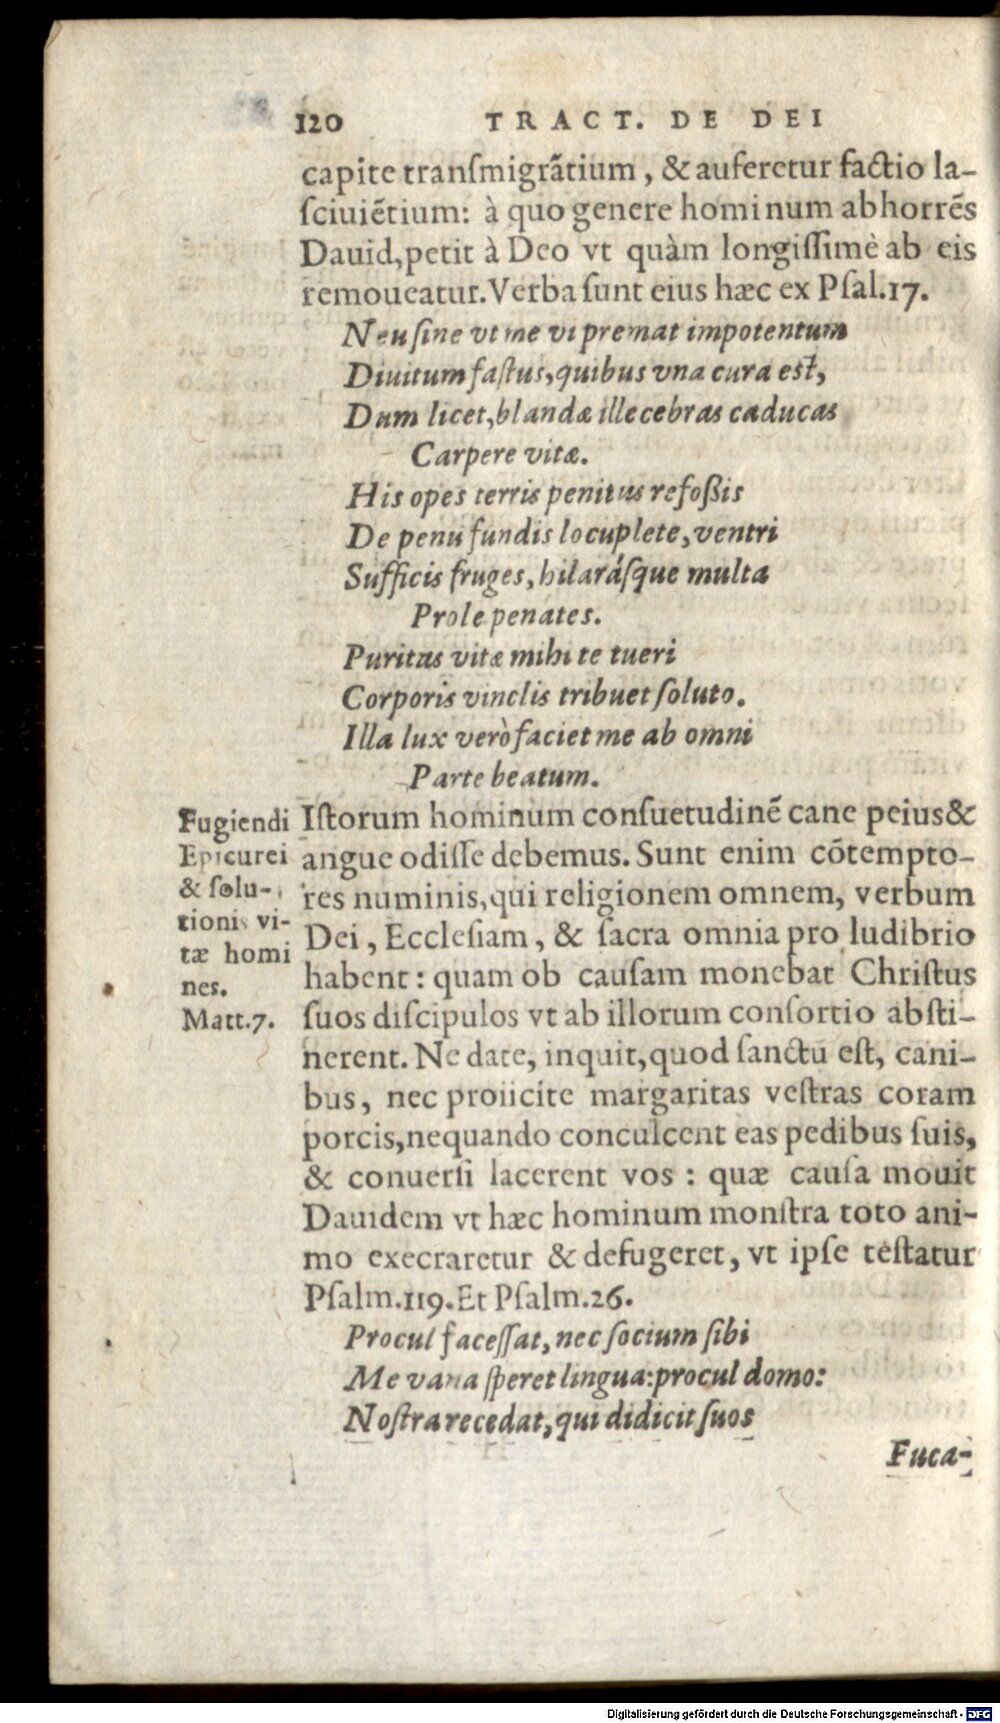 120 TRACT. DE DEI
capite tranſmigrãtium, & auferetur factio la-
ſciuiẽtium: à quo genere hominum abhorrẽs
Dauid, petit à Deo vt quàm longiſſimè ab eis
remoueatur. Verba ſunt eius hæc ex Pſal.17.
Neu ſine vt me vi premat impotentum
Diuitum faſtus, quibus vna cura eſt,
Dum licet, blandæ illecebras caducas
Carpere vitæ.
His opes terris penitus refoßis
De penu fundis locuplete, ventri
Sufficis fruges, hilaráſque multa
Prole penates.
Puritas vitæ mihi te tueri
Corporis vinclis tribuet ſoluto.
Illa lux verò faciet me ab omni
Parte beatum.
Fugiendi
Epicurei
& ſolu-
tionis vi-
tæ homi
nes.
Matt.7.
Iſtorum hominum conſuetudinẽ cane peius &
angue odiſſe debemus. Sunt enim cõtempto-
res numinis, qui religionem omnem, verbum
Dei, Eccleſiam, & ſacra omnia pro ludibrio
habent: quam ob cauſam monebat Chriſtus
ſuos diſcipulos vt ab illorum conſortio abſti-
nerent. Ne date, inquit, quod ſanctũ eſt, cani-
bus, nec proiicite margaritas veſtras coram
porcis, nequando conculcent eas pedibus ſuis,
& conuerſi lacerent vos: quæ cauſa mouit
Dauidem vt hæc hominum monſtra toto ani-
mo execraretur & defugeret, vt ipſe teſtatur
Pſalm.119. Et Pſalm.26.
Procul faceſſat, nec ſocium ſibi
Me vana ſperet lingua: procul domo:
Noſtra recedat, qui didicit ſuos
Fuca-
Digitalisierung gefördert durch die Deutsche Forschungsgemeinschaft - DFG